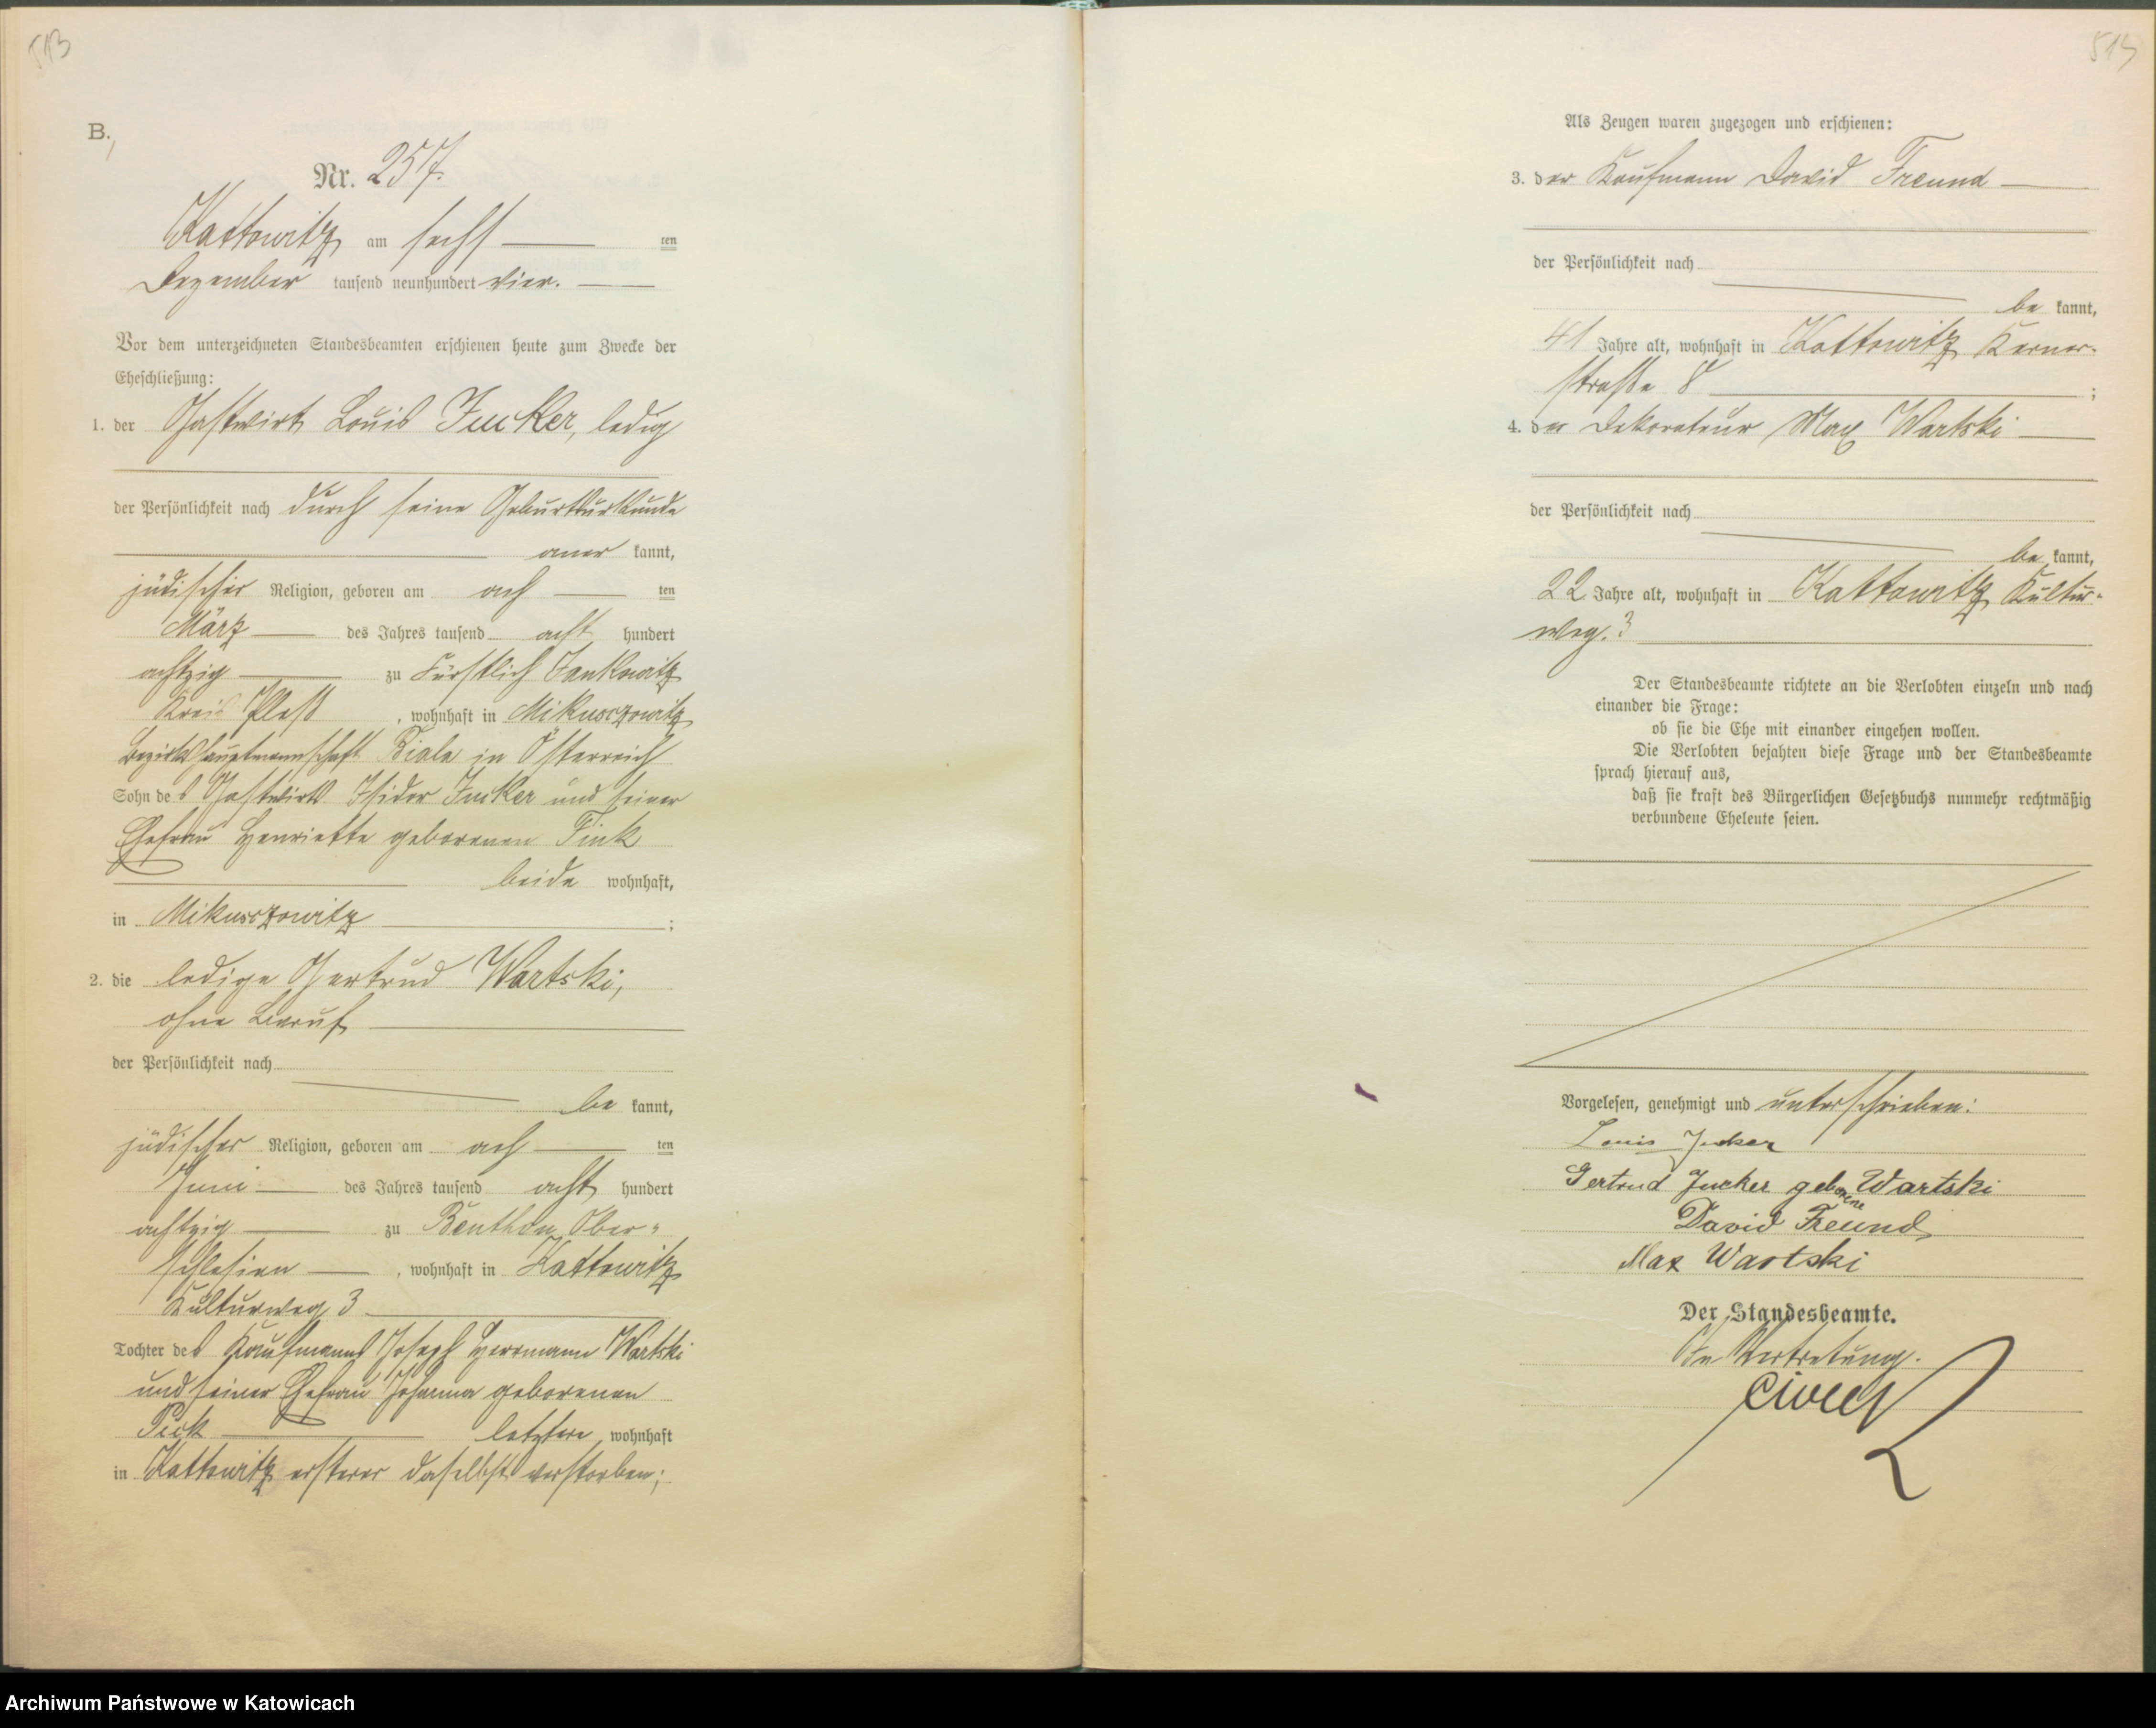 513
B.,
Nr. 257.
Kattowitz am sechs ten
Dezember tausend neunhundert vier.
Vor dem unterzeichneten Standesbeamten erschienen heute zum Zwecke der
Eheschließung:
1. der Gastwirt Louis Jucker, ledig
der Persönlichkeit nach durch seine Geburtsurkunde
aner kannt,
jüdischer Religion, geboren am ach ten
März des Jahres tausend acht hundert
achtzig zu Fürstlich Jankowitz
Kreis Pleß, wohnhaft in Mikusczowitz
Bezirkshauptmannschaft Biala in Österreich
Sohn des Gastwirts Isidor Jucker und seiner
Ehefrau Henriette geborenen Fink
beide wohnhaft,
in Mikusczowitz;
2. die ledige Gertrud Wartski,
ohne Beruf
der Persönlichkeit nach
be kannt,
jüdischer Religion, geboren am ach ten
Juni des Jahres tausend acht hundert
achtzig zu Beuthen Ober-
schlesien, wohnhaft in Kattowitz
Kulturweg 3
Tochter des Kaufmanns Joseph Herrmann Wartski
und seiner Ehefrau Johanna geborenen
Pick letztere wohnhaft
in Kattowitz ersterer daselbst verstorben;
Als Zeugen waren zugezogen und erschienen:
3. der Kaufmann David Freund
der Persönlichkeit nach
be kannt,
41 Jahre alt, wohnhaft in Kattowitz
straße 8;
4. der Dekorateur Max Wartski
der Persönlichkeit nach
be kannt,
22 Jahre alt, wohnhaft in Kattowitz Kultur-
weg. 3
Der Standesbeamte richtete an die Verlobten einzeln und nach
einander die Frage:
ob sie die Ehe mit einander eingehen wollen.
Die Verlobten bejahten diese Frage und der Standesbeamte
sprach hierauf aus,
daß sie kraft des Bürgerlichen Gesetzbuchs nunmehr rechtmäßig
verbundene Eheleute seien.
Vorgelesen, genehmigt und unterschrieben:
Louis Jucker
Gertrud Jucker geborene Wartski
David Freund
Max Wartski
Der Standesbeamte.
In Vertretung.
Archiwum Państwowe w Katowicach